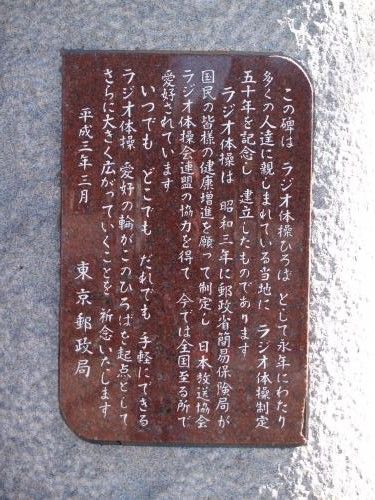 この碑は ラジオ体操ひろば として永年にわたり
多くの人達に親しまれている当地に ラジオ体操制定
五十年を記念し 建立したものであります
ラジオ体操は 昭和三年に郵政省簡易保険局が
国民の皆様の健康増進を願って制定し 日本放送協会
ラジオ体操会連盟の協力を得て 今では全国至る所で
愛好されています
いつでも どこでも だれでも 手軽にできる
ラジオ体操 愛好の輪がこのひろばを起点として
さらに大きく広がっていくことを 祈念いたします
平成三年三月 東京郵政局